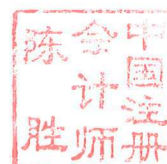 中国注册
会计师
陈胜